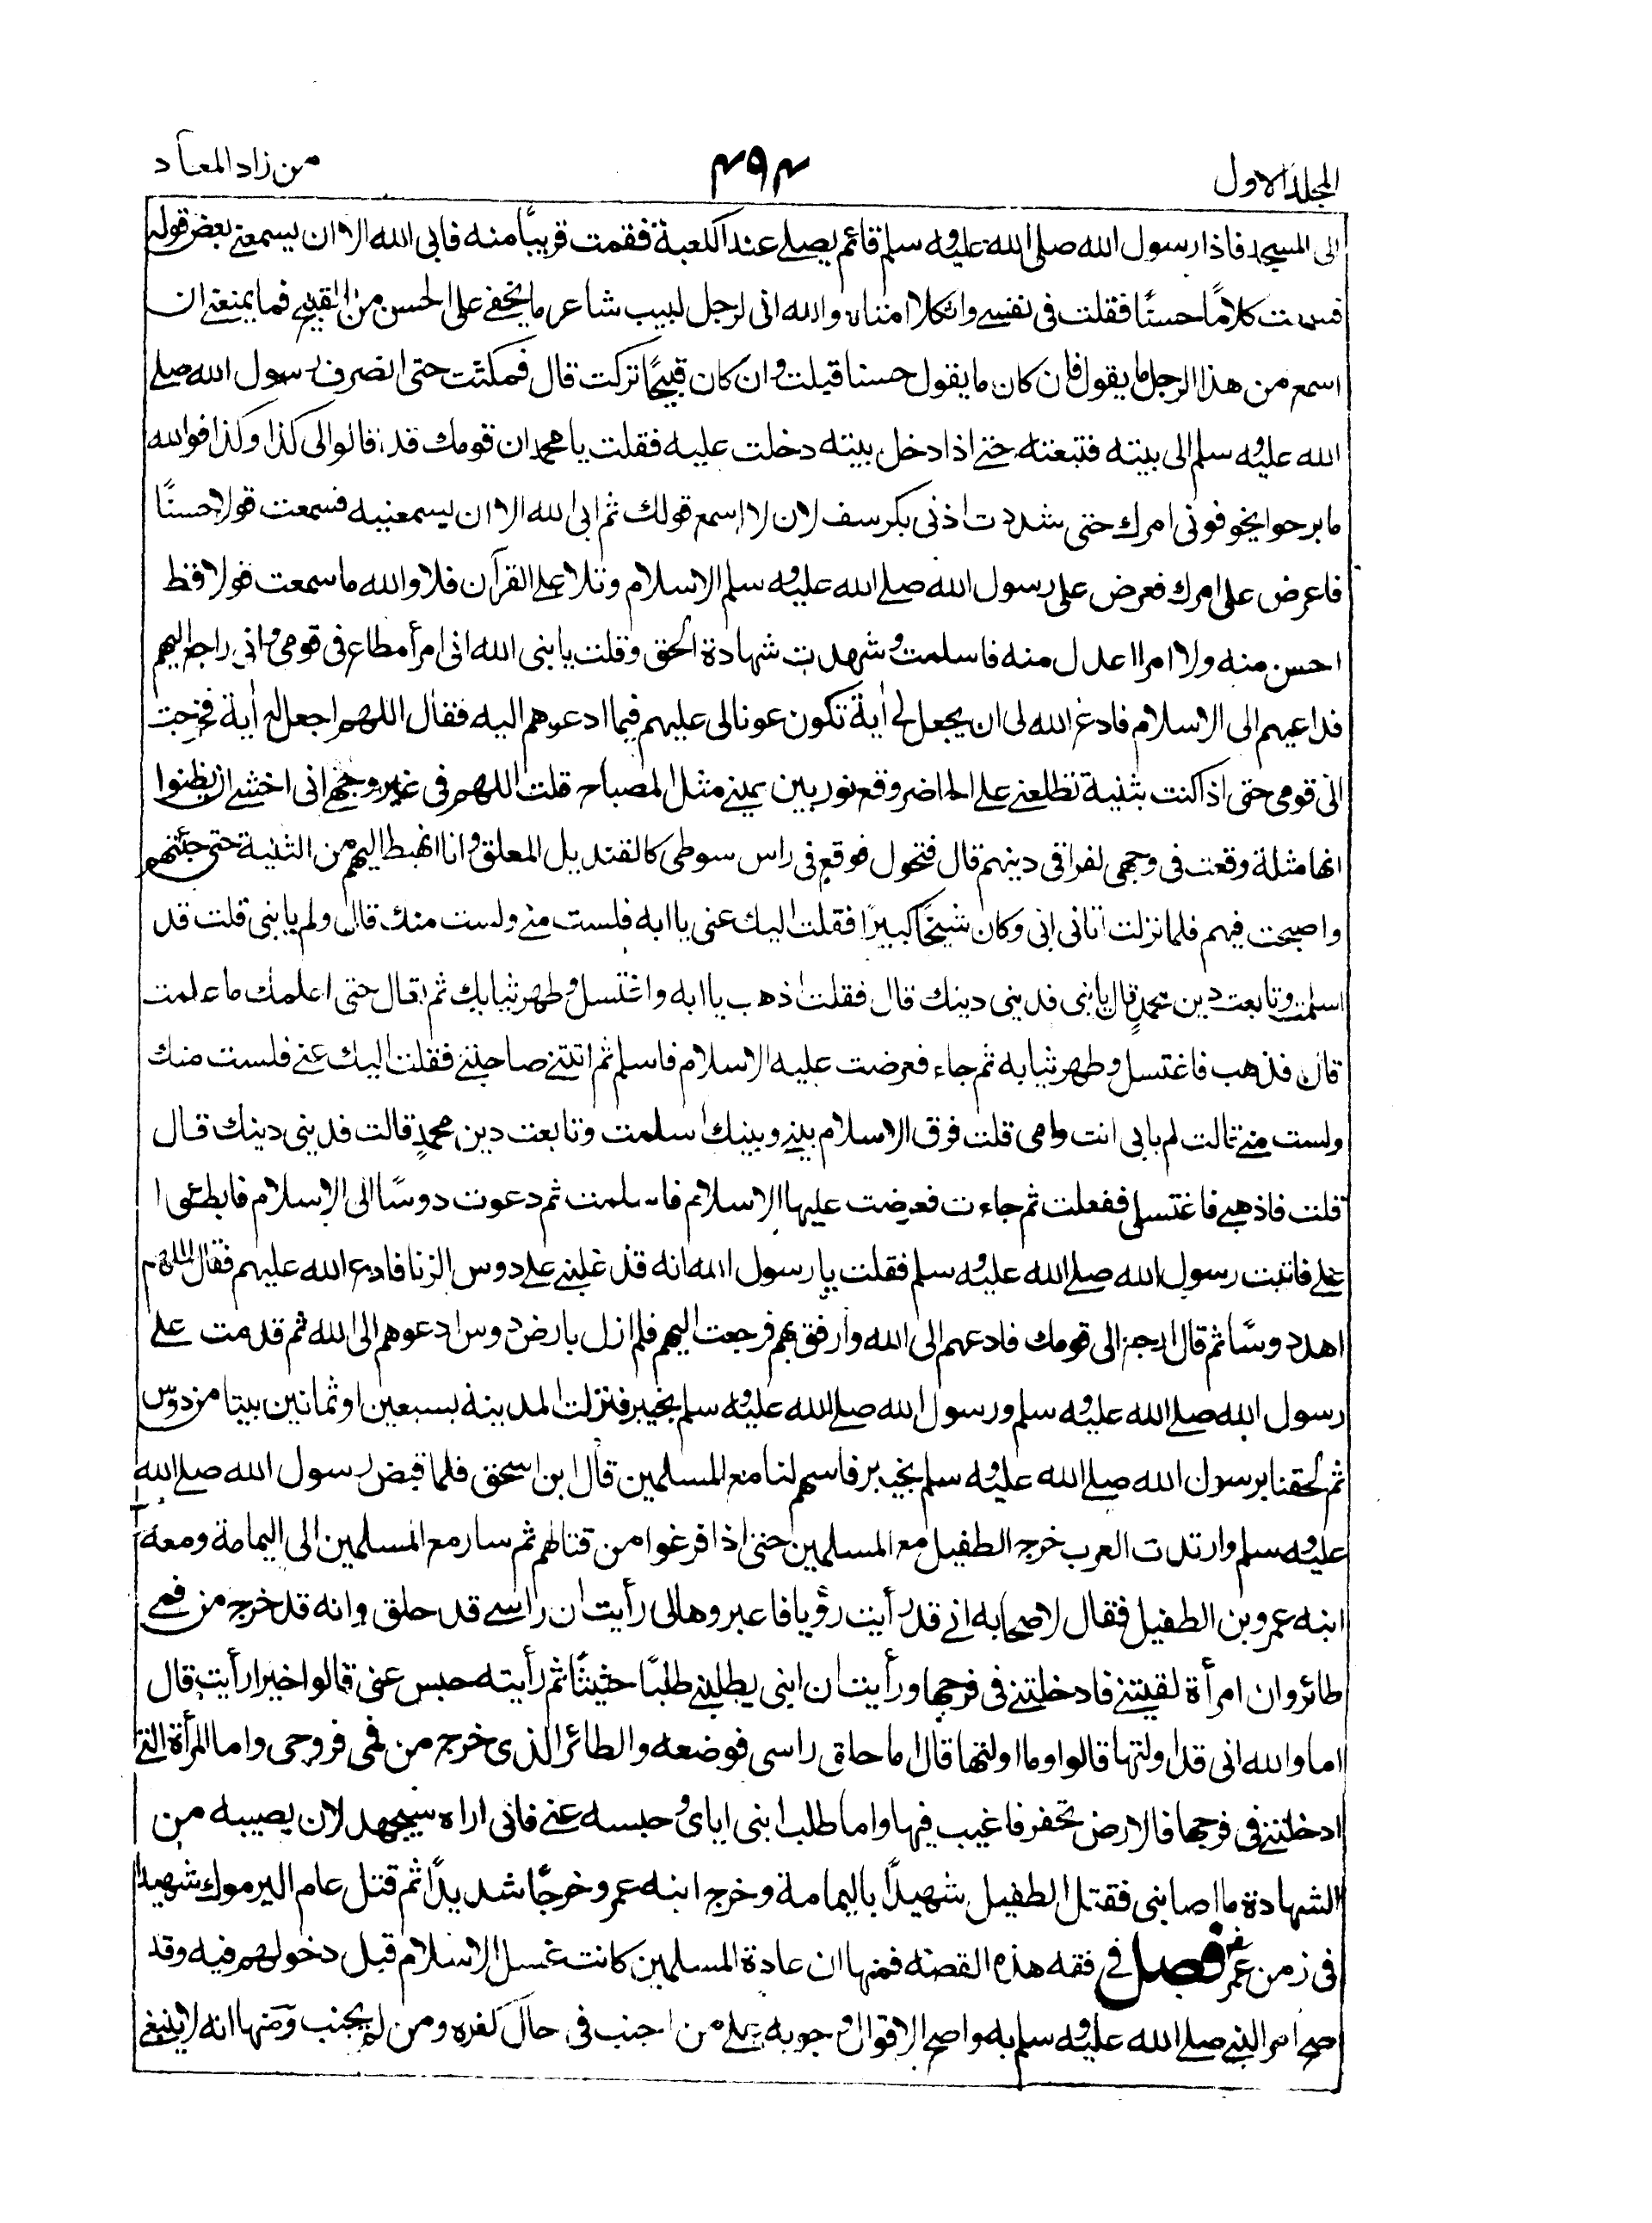 المجلد الاول
٤٩٤
من زاد المعاد
الى المسجد فاذا رسول الله صلى الله عليه وسلم قائم يصلے عند الكعبة فقمت قريبًا منه فابى الله الا ان يسمعنے بعض قوله
فسمعت كلامًا حسنًا فقلت فى نفسے واثكلا امتاه والله انى لرجل لبيب شاعر ما يخفے على الحسن من القبيح فما يمنعنے ان
اسمع من هذا الرجل ما يقول فان كان ما يقول حسنا قبلت وان كان قبيحًا تركت قال فمكثت حتى انصرف رسول الله صلے
الله عليه وسلم الى بيته فتبعته حتے اذا دخل بيته دخلت عليه فقلت يا محمد ان قومك قد قالوا لى كذا وكذا فوالله
ما برحوا يخوفونى امرك حتى شددت اذنى بكرسف لان لا اسمع قولك ثم ابى الله الا ان يسمعنيه فسمعت قولا حسنًا
فاعرض على امرك فعرض على رسول الله صلے الله عليه وسلم الاسلام وتلا علے القرآن فلا والله ما سمعت قولا قط
احسن منه ولا امرا اعدل منه فاسلمت وشهدت شهادة الحق وقلت يا نبى الله انى امرأ مطاع فى قومى وانى راجع اليهم
فداعيهم الى الاسلام فادع الله لى ان يجعل لے اٰية تكون عونا لى عليهم فيما ادعوهم اليه فقال اللهم اجعل له اٰية فخرجت
الى قومى حتى اذا كنت بثنية تطلعنے علے الحاضر وقع نور بين عينے مثل المصباح قلت اللهم فى غير وجهے انى اخشے ان يظنوا
انها مثلة وقعت فى وجهى لفراقى دينهم قال فتحول فوقع فى راس سوطى كالقنديل المعلق وانا انهبط اليهم من الثنية حتى جئتهم
واصبحت فيهم فلما نزلت اتانى ابى وكان شيخًا كبيرًا فقلت اليك عنى يا ابه فلست منے ولست منك قال ولم يا بنى قلت قد
اسلمت وتابعت دين محمدٍ قال يا بنى فدينى دينك قال فقلت اذهب يا ابه واغتسل وطهر ثيابك ثم تعال حتى اعلمك ما علمت
قال فذهب فاغتسل وطهر ثيابه ثم جاء فعرضت عليه الاسلام فاسلم ثم اتتنے صاحبتے فقلت اليك عنے فلست منك
ولست منے قالت لم بابى انت وامى قلت فرق الاسلام بينے وبينك اسلمت وتابعت دين محمدٍ قالت فدينى دينك قال
قلت فاذهبے فاغتسلى ففعلت ثم جاءت فعرضت عليها الاسلام فاسلمت ثم دعوت دوسًا الى الاسلام فابطئوا
علے فاتيت رسول الله صلے الله عليه وسلم فقلت يا رسول الله انه قد غلبنے علے دوس الزنا فادع الله عليهم فقال اللهم
اهد دوسًا ثم قال ارجع الى قومك فادعهم الى الله وارفق بهم فرجعت اليهم فلم ازل بارض دوس ادعوهم الى الله ثم قدمت علے
رسول الله صلے الله عليه وسلم ورسول الله صلے الله عليه وسلم بخيبر فنزلت المدينة بسبعين او ثمانين بيتا من دوس
ثم لحقنا برسول الله صلے الله عليه وسلم بخيبر فاسهم لنا مع المسلمين قال ابن اسحٰق فلما قبض رسول الله صلے الله
عليه وسلم وارتدت العرب خرج الطفيل مع المسلمين حتى اذا فرغوا من قتالهم ثم سار مع المسلمين الى اليمامة ومعه
ابنه عمرو بن الطفيل فقال لاصحابه انے قد رأيت رؤيا فاعبروها لى رأيت ان راسے قد حلق وانه قد خرج من فمے
طائر وان امرأة لقيتنے فادخلتنے فى فرجها ورأيت ان ابنى يطلبنے طلبًا حثيثًا ثم رأيته حبس عنى قالوا خيرا رأيت قال
اما والله انى قد اولتها قالوا وما اولتها قال اما حلق راسى فوضعه والطائر الذى خرج من فمى فروحى واما المرأة التے
ادخلتنے فى فرجها فالارض تحفر فاغيب فيها واما طلب ابنى اياى وحبسه عنے فانى اراه سيجهد لان يصيبه من
الشهادة ما اصابنى فقتل الطفيل شهيدًا باليمامة وخرج ابنه عمرو خرجًا شديدًا ثم قتل عام اليرموك شهيدا
فى زمن عمر فصل فے فقه هذه القصة فمنها ان عادة المسلمين كانت غسل الاسلام قبل دخولهم فيه وقد
صح امر النبے صلے الله عليه وسلم به واصح الاقوال وجوبه علے من اجنب فى حال كفره ومن لم يجنب ومنها انه لا ينبغے